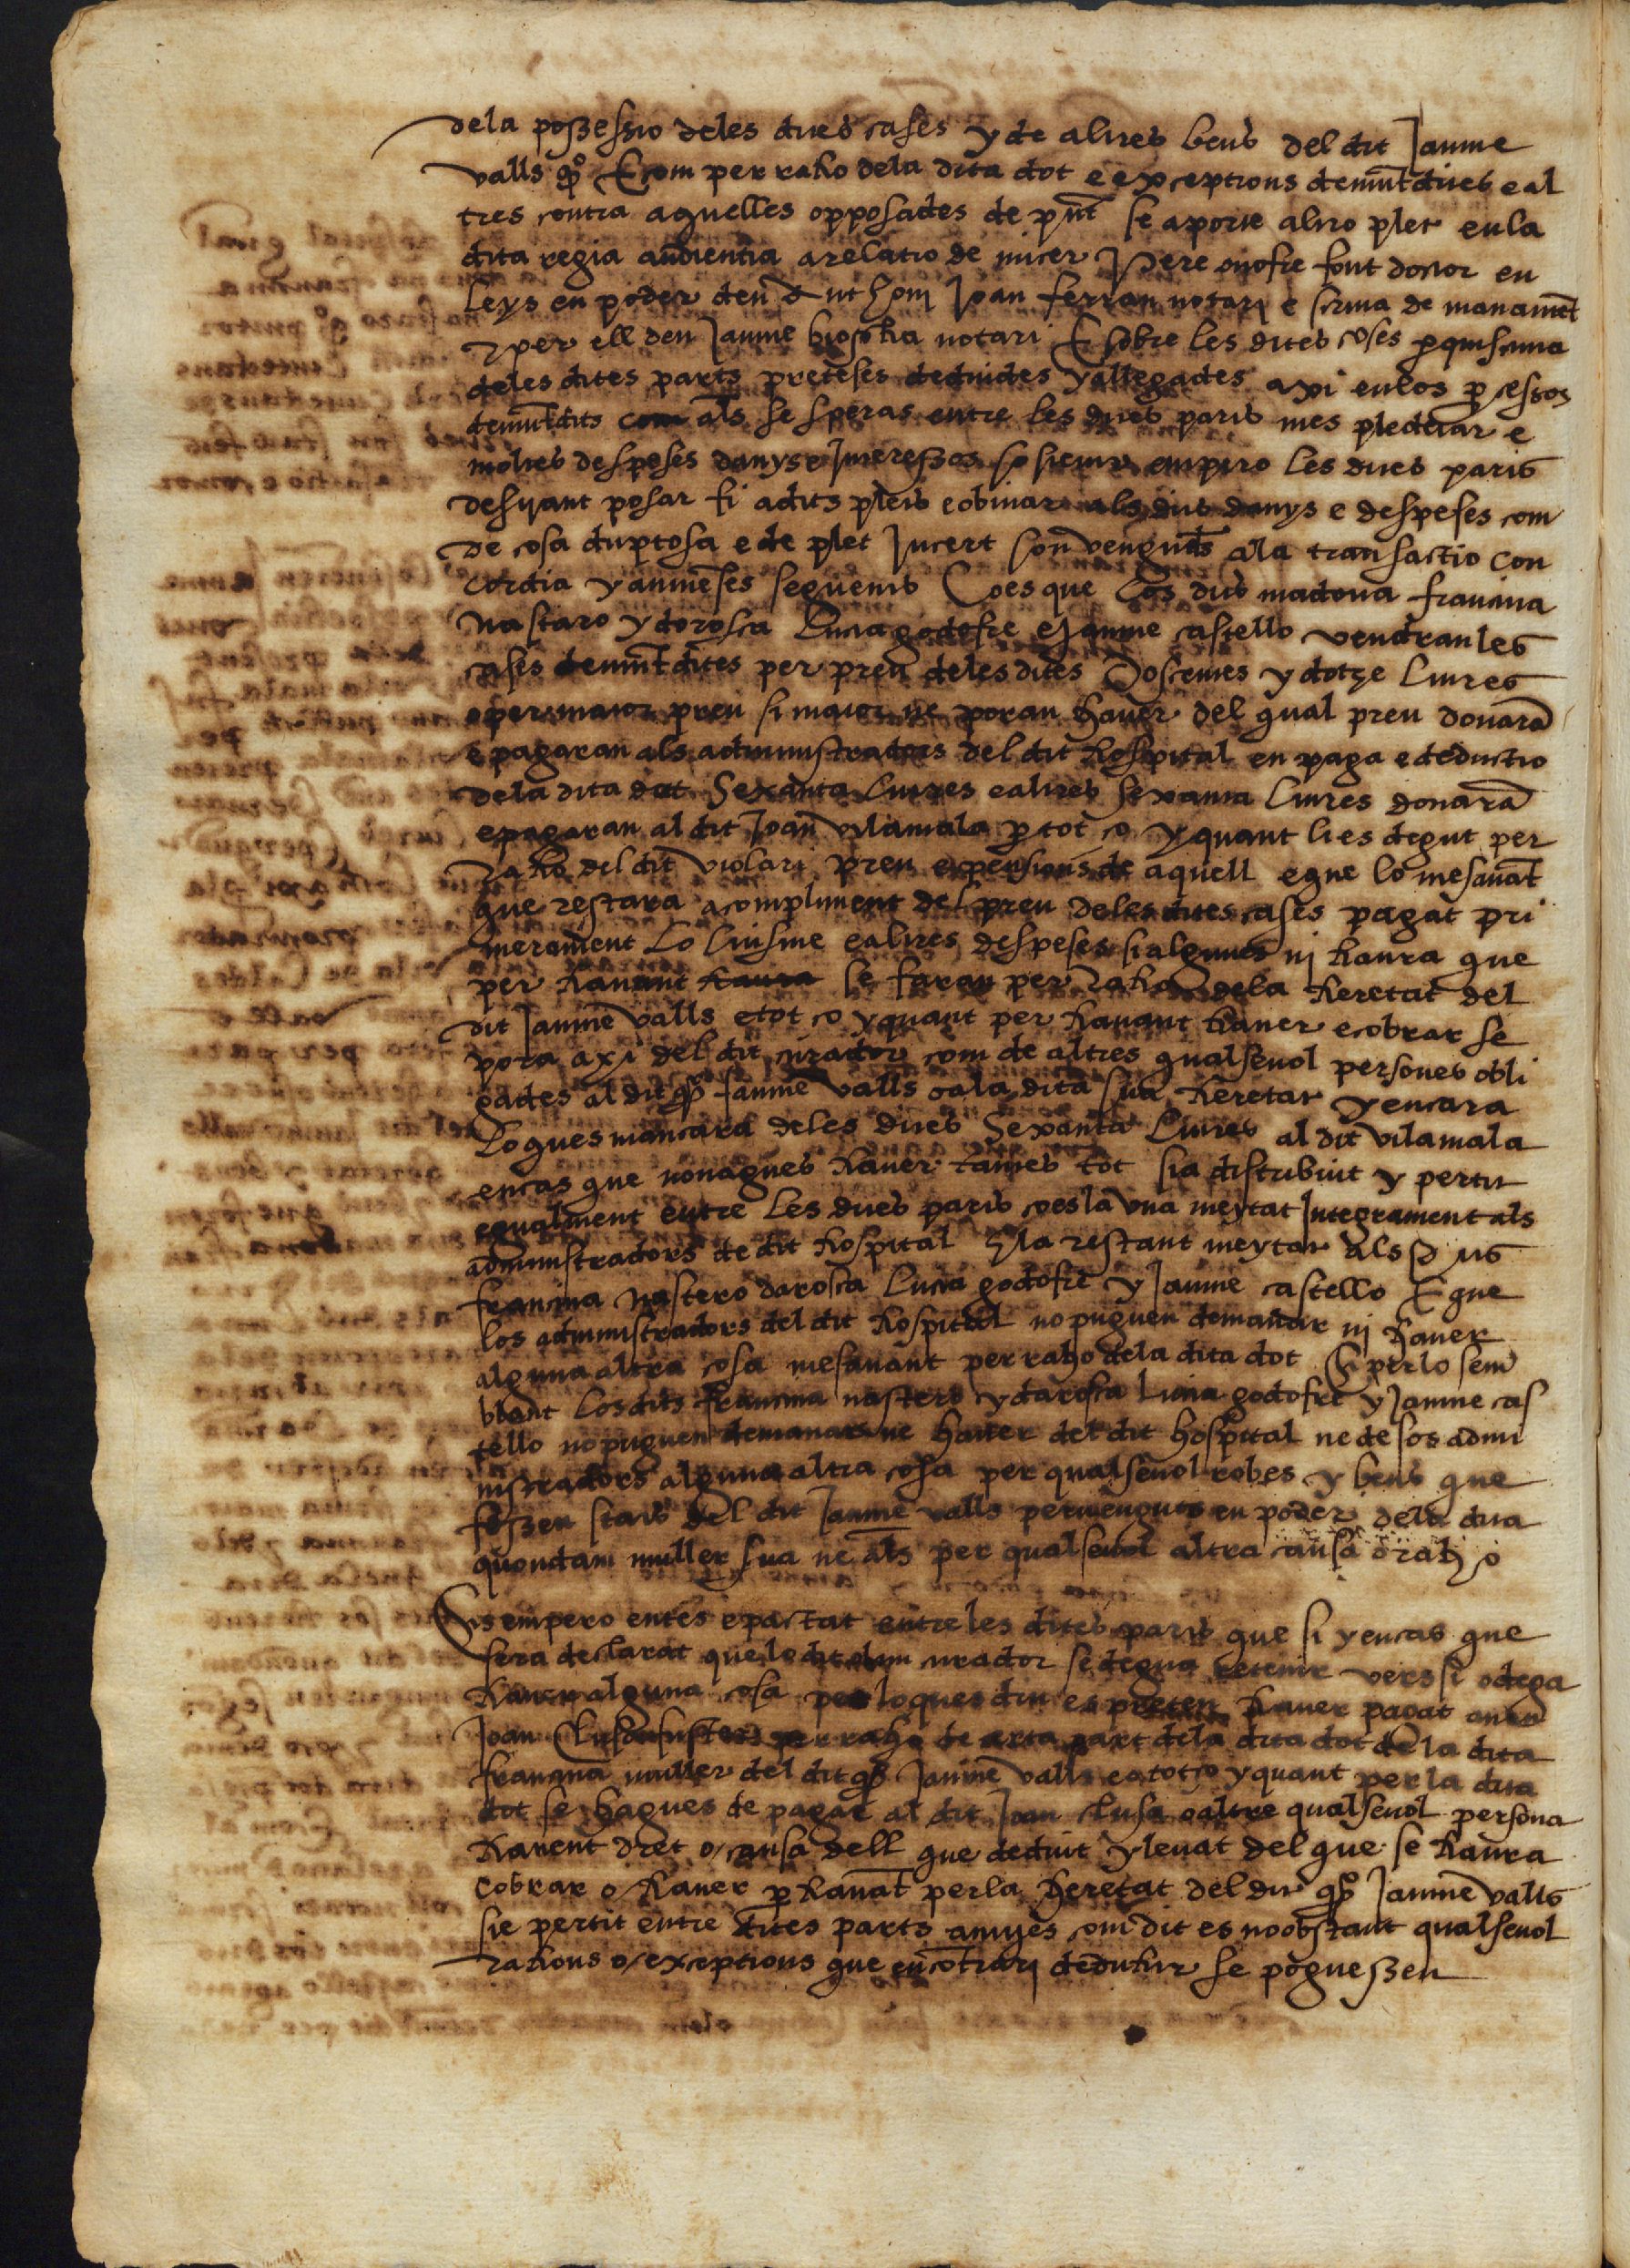 dela possessio deles dites cases y de altres bens del dit Jaume
valls qº E com per raho dela dita dot e exceptions demūtdites e al
tres contra aquelles opposades de pñt se aporte altro plet enla
dita regia audientia a relatio de micer Pere onofre font doctor en
leys en poder den Anthonj Joan ferran notarj e scriva de manamēt
y per ell den Jaume biosca notari E sobre les dites coses p quiscuna
deles dites parts preteses deduides y allegades axi enlos pcessos
demūtdits com als se speras entre les dites parts mes pledeiar e
moltes despeses danys e Interessos sostenir empero les dites parts
desijant posar fi adits plets e obviar als dits danys e despeses com
de cosa duptosa e de plet Incert son venguts ala transactio con
cordia y avinēses seguents Coes que los dits madona francina
Nastaro y dorosca Lucia godofre e Jaume castello vendran les
cases demūtdites per preu deles dites Doscentes y dotze liures
e per maior preu si maior ne poran haver del qual preu donarā
e pagaran als administradors del dit hospital en paga e deductio
dela dita dot Sexanta liures e altres sexanta liures donarā
e pagaran al dit Joan vilamala p tot ço y quant li es degut per
raho del dit violari preu e pensions de aquell e que lo mesavāt
que restara a compliment del preu deles dites cases pagat pri
merament lo luisme e altres despeses si algunes nj haura que
per havant haura se faran per raho dela heretat del
dit Jaume valls e tot ço y quant per havant haver e cobrar se
pora axi del dit curador com de altres qualsevol persones obli
gades al dit qº Jaume valls o ala dita sua heretat y encara
lo ques mancara deles dites Sexanta liures al dit vilamala
encas que non agues haver tantes tot sia distribuit y pertit
egualment entre les dites parts coes la una meytat Integrament als
administradors de dit hospital E la restant meytat als dits
francina Nastero darosca Lucia godofre y Jaume castello E que
los administradors del dit hospital no puguen demanar nj haver
alguna altra cosa mesavant per raho dela dita dot E perlo sem
blant los dits francina nastero y darosca lucia godofre y Jaume cas
tello no puguen demanar ne haver del dit hospital ne de sos admi
nistradors alguna altra cosa per qualsevol robes y bens que
fossen stats del dit Jaume valls pervenguts en poder dela dita
quondam muller sua ne als per qualsevol altra causa o raho
Es empero entes e pactat entre les dites parts que si y encas que
sera declarat que lo dit olim curador se degua retenir vers si o dega
haver alguna cosa per lo ques diu es preten haver pagat an en
Joan Clusa fuster per raho de certa part dela dita dot dela dita
francina muller del dit qº Jaume valls e o tot ço y quant per la dita
dot se hagues de pagar al dit Joan clusa o altre qualsevol persona
havent dret o causa dell que deduit y levat del que se haura
cobrar o haver p havāt perla heretat del dit qº Jaume valls
sie pertit entre dites parts amijes com dit es no obstant qualsevol
rahons o exceptions que en cōtrarj deduhir se poguessen